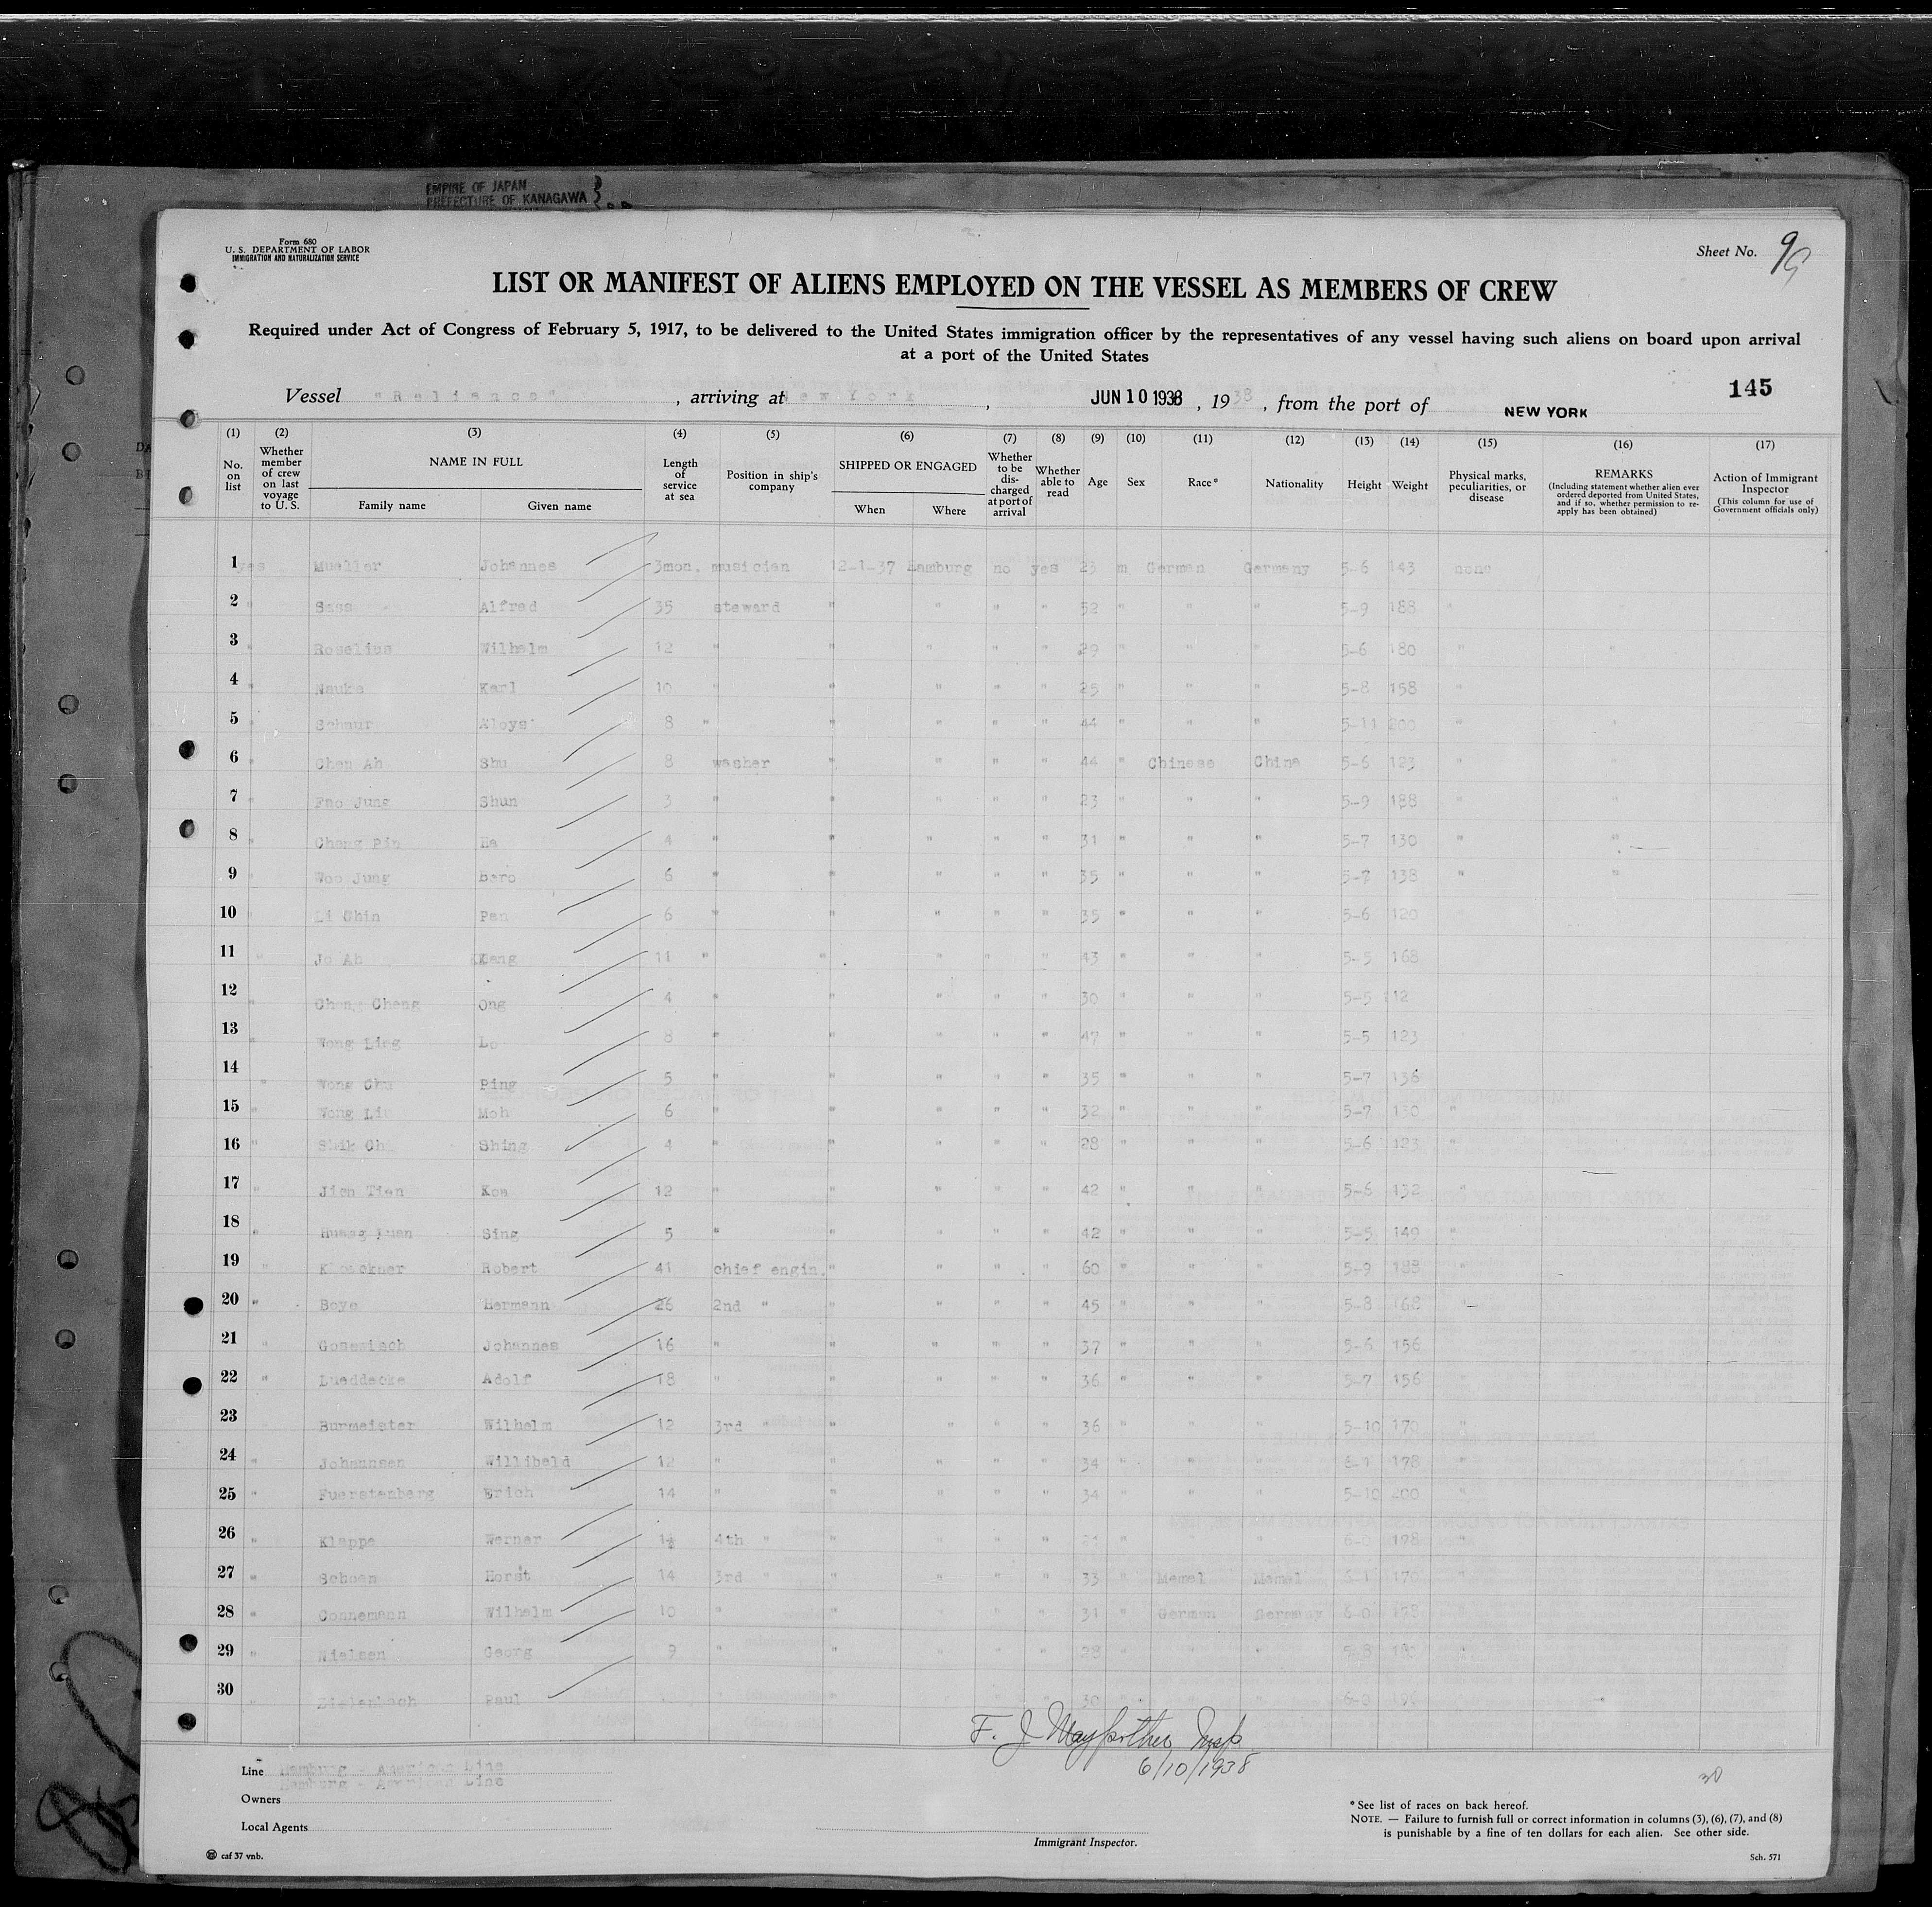 EMPIRE OF JAPAN
PREFECTURE OF KANAGAWA
Form 680
U. S. DEPARTMENT OF LABOR
IMMIGRATION AND NATURALIZATION SERVICE
Sheet No. 9
LIST OR MANIFEST OF ALIENS EMPLOYED ON THE VESSEL AS MEMBERS OF CREW
Required under Act of Congress of February 5, 1917, to be delivered to the United States immigration officer by the representatives of any vessel having such aliens on board upon arrival
at a port of the United States
145
Vessel "Reliance", arriving at New York, JUN 10 1938, 1938, from the port of NEW YORK
(1) (2) (3) (4) (5) (6) (7) (8) (9) (10) (11) (12) (13) (14) (15) (16) (17)
No. on list
Whether member of crew on last voyage to U. S.
NAME IN FULL
Family name Given name
Length of service at sea
Position in ship's company
SHIPPED OR ENGAGED
When Where
Whether to be discharged at port of arrival
Whether able to read
Age
Sex
Race*
Nationality
Height
Weight
Physical marks, peculiarities, or disease
REMARKS
(Including statement whether alien ever ordered deported from United States, and if so, whether permission to re-apply has been obtained)
Action of Immigrant Inspector
(This column for use of Government officials only)
1 yes Mueller Johannes 3mon. musician 12-1-37 Hamburg no yes 23 m German Germany 5-6 143 none
2 " Sass Alfred 35 steward " " " " 52 " " " 5-9 188 "
3 " Roselius Wilhelm 12 " " " " " 29 " " " 5-6 180 " "
4 " Nauke Karl 10 " " " " " 25 " " " 5-8 158 "
5 " Schnur Aloys 8 " " " " " 44 " " " 5-11 200 " "
6 " Chen Ah Shu 8 washer " " " " 44 " Chinese China 5-6 123 " "
7 " Pao Jung Shun 3 " " " " " 23 " " " 5-9 188 " "
8 " Cheng Pin Ha 4 " " " " " 31 " " " 5-7 130 " "
9 " Woo Jung 6 " " " " " 35 " " " 5-7 138 " "
10 " Li Chin Pan 6 " " " " " 35 " " " 5-6 120
11 " Jo Ah 11 " " " " " 43 " " " 5-5 168
12 " Chong Cheng Ong 4 " " " " " 30 " " " 5-5
13 " Wong Ling Lo 8 " " " " " 47 " " " 5-5 123
14 " Wong Chu Ping 5 " " " " " 35 " " " 5-7 136
15 " Wong Liu Moh 6 " " " " " 32 " " " 5-7 130 "
16 " Shik Ch Shing 4 " " " " " 28 " " " 5-6 123 "
17 " Jien Tien Koa 12 " " " " " 42 " " " 5-6 132 "
18 " Huang Yuan Sing 5 " " " " " 42 " " " 5-5 149 "
19 " Kloeckner Robert 41 chief engin. " " " " 60 " " " 5-9 188 "
20 " Boye Hermann 26 2nd " " " " " 45 " " " 5-8 168 "
21 " Johannes 16 " " " " " 37 " " " 5-6 156
22 " Lueddecke Adolf 18 " " " " " 36 " " " 5-7 156
23 Burmeister Wilhelm 12 3rd " " " " " 36 " " " 5-10 170 "
24 " Johannsen Willibald 12 " " " " " 34 " " " 6-1 178 "
25 " Fuerstenberg Erich 14 " " " " " 34 " " " 5-10 200 "
26 " Klappe Werner 4th " " " " " " " " 198 "
27 " Schoen Horst 14 3rd " " " " " 33 " Memel Memel 6-1 170 "
28 " Connemann Wilhelm 10 " " " " " 31 " German Germany 6-0 178 "
29 " Nielsen Georg 9 " " " " " 28 " " " 5-8
30 " Paul 30
F. J. Mayforther Insp.
6/10/1938
30
Line Hamburg - American Line
Hamburg - American Line
Owners
Local Agents
Immigrant Inspector.
* See list of races on back hereof.
NOTE. — Failure to furnish full or correct information in columns (3), (6), (7), and (8)
is punishable by a fine of ten dollars for each alien. See other side.
caf 37 vnb.
Sch. 571